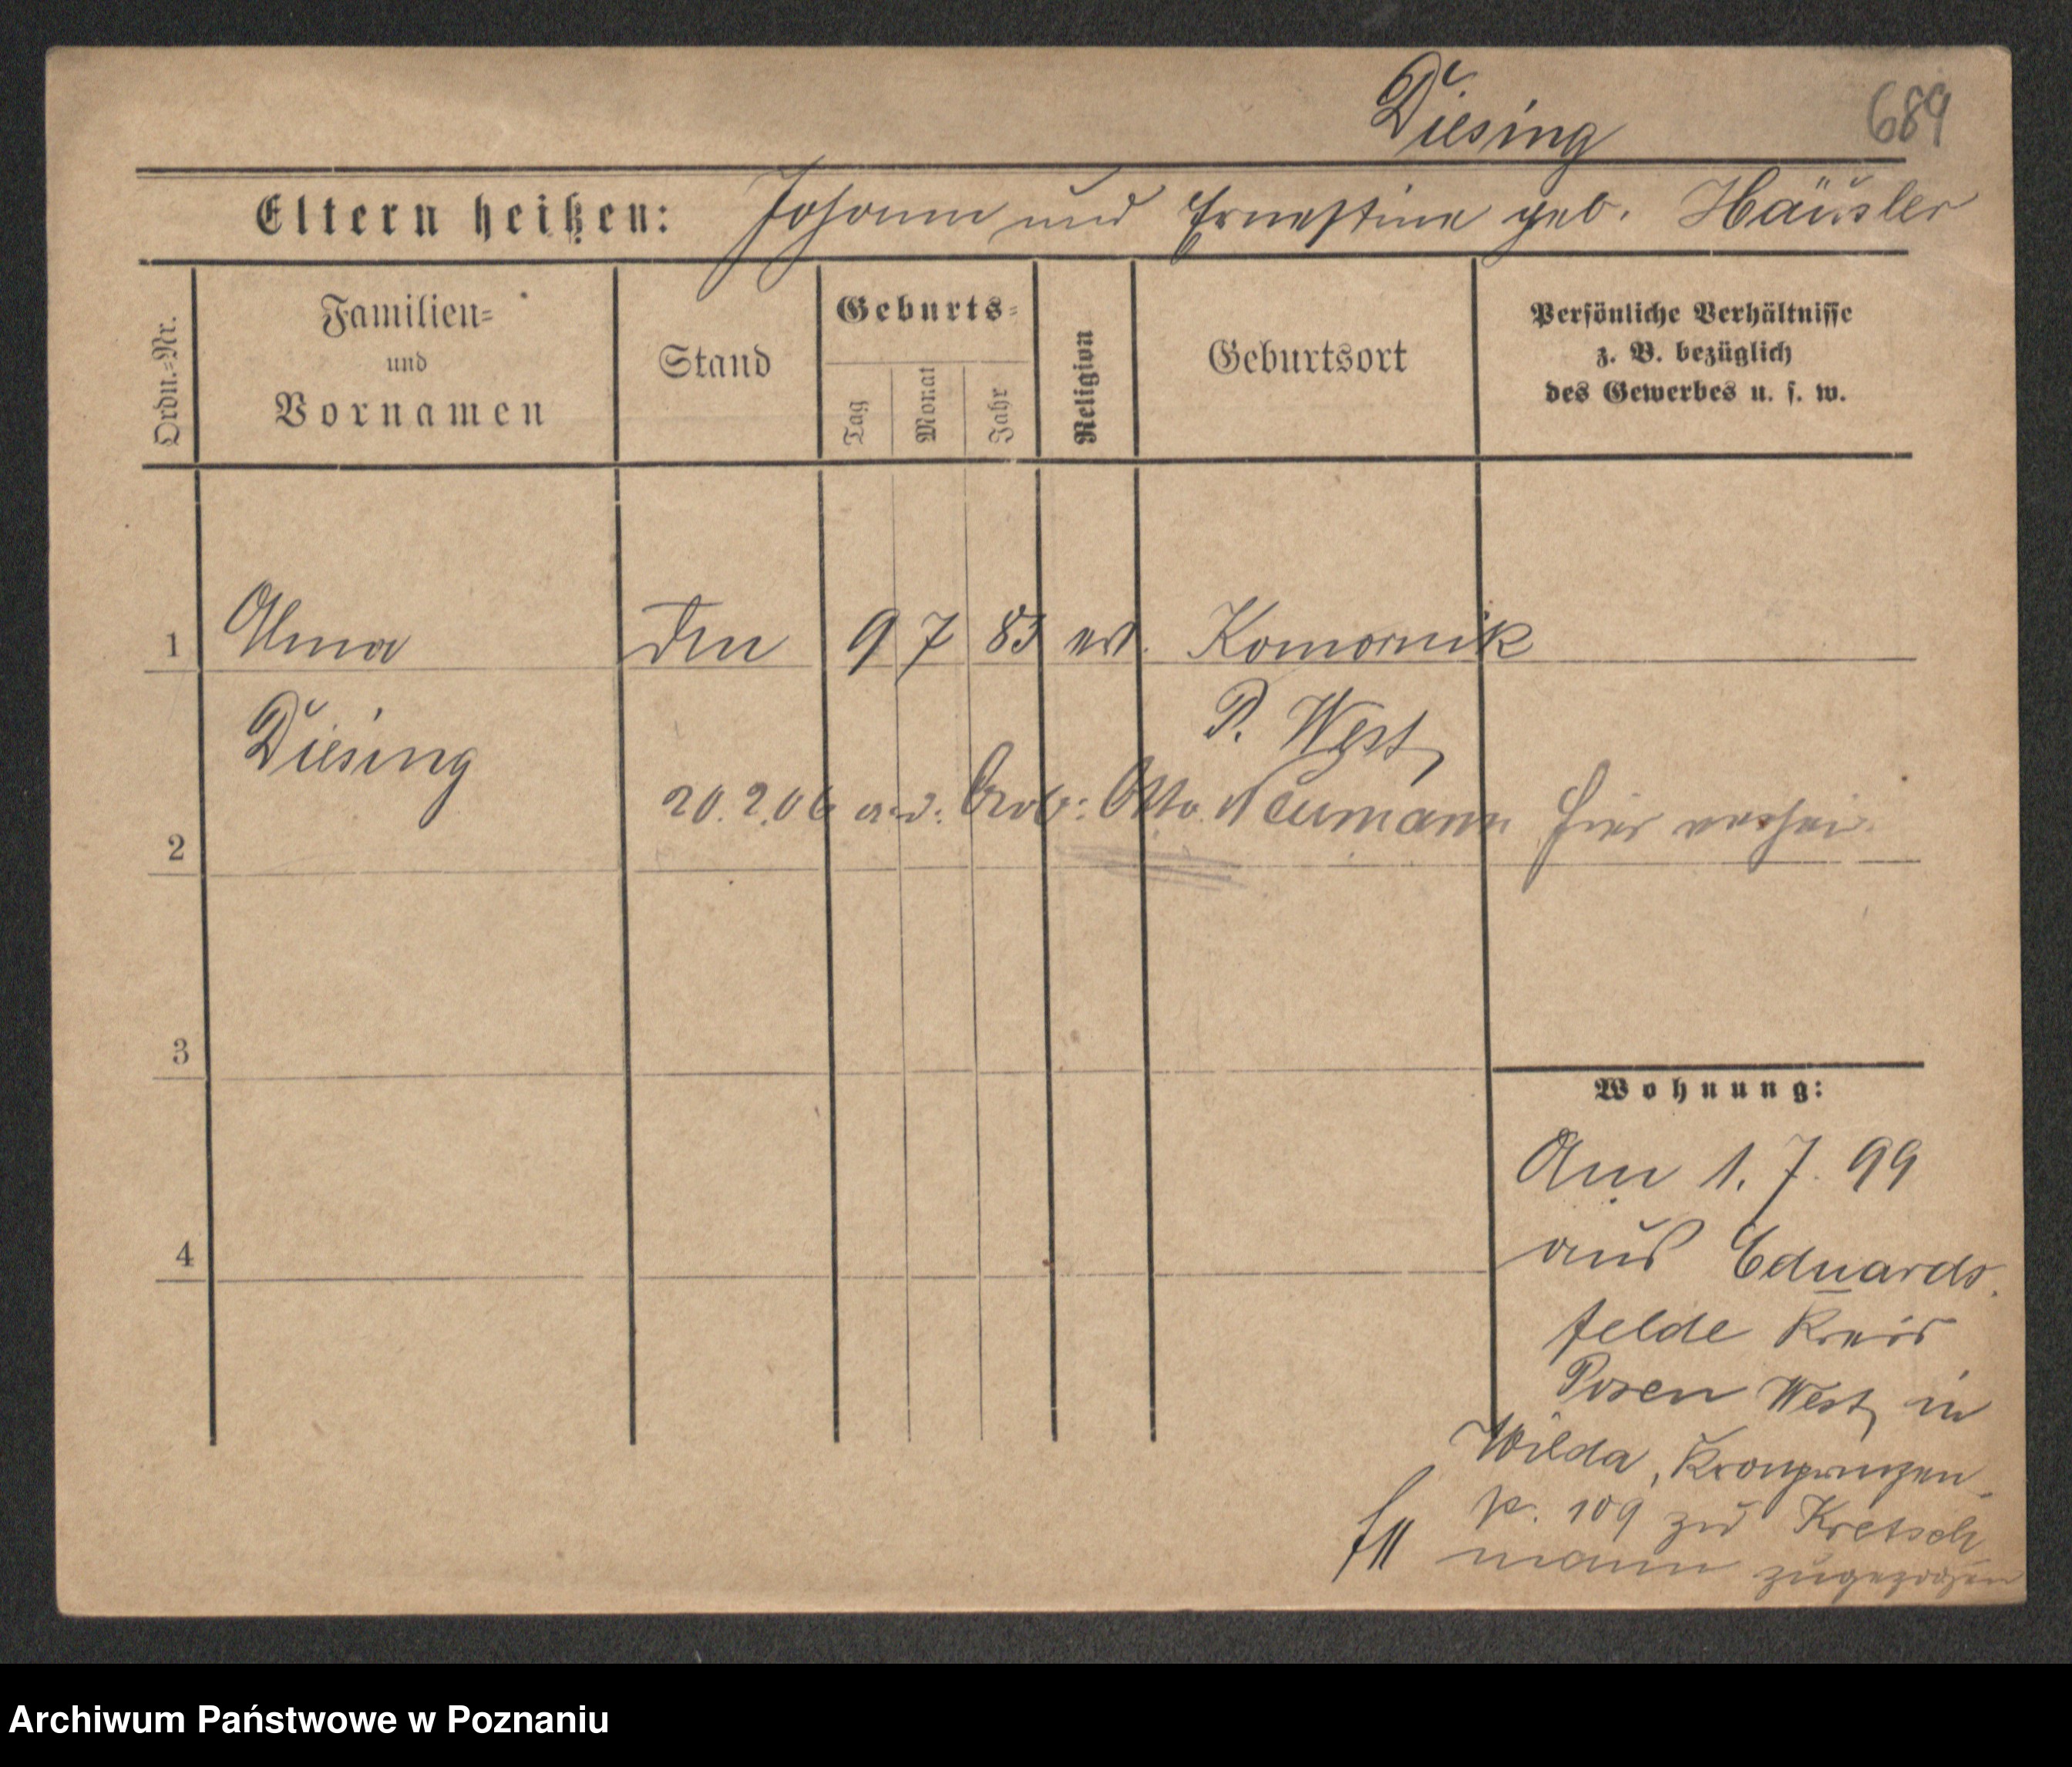 Diesing
689
Eltern heißen: Johann und Ernestine geb. Häusler
Ordn.=Nr.
Familien=
und
Vornamen
Stand
Geburts=
Tag
Monat
Jahr
Religion
Geburtsort
Persönliche Verhältnisse
z. B. bezüglich
des Gewerbes u. s. w.
1 Alma 9 7 83 ev. Komornik
Diesing
P. West
20.2.06 a. d. Arb: Otto Neumann hier verhei
2
3
4
Wohnung:
Am 1. 7. 99
aus Eduards
felde Kreis
Posen West in
Wilda, Kronprinzen
109 zu Kretsch
mann zugezogen
Archiwum Państwowe w Poznaniu